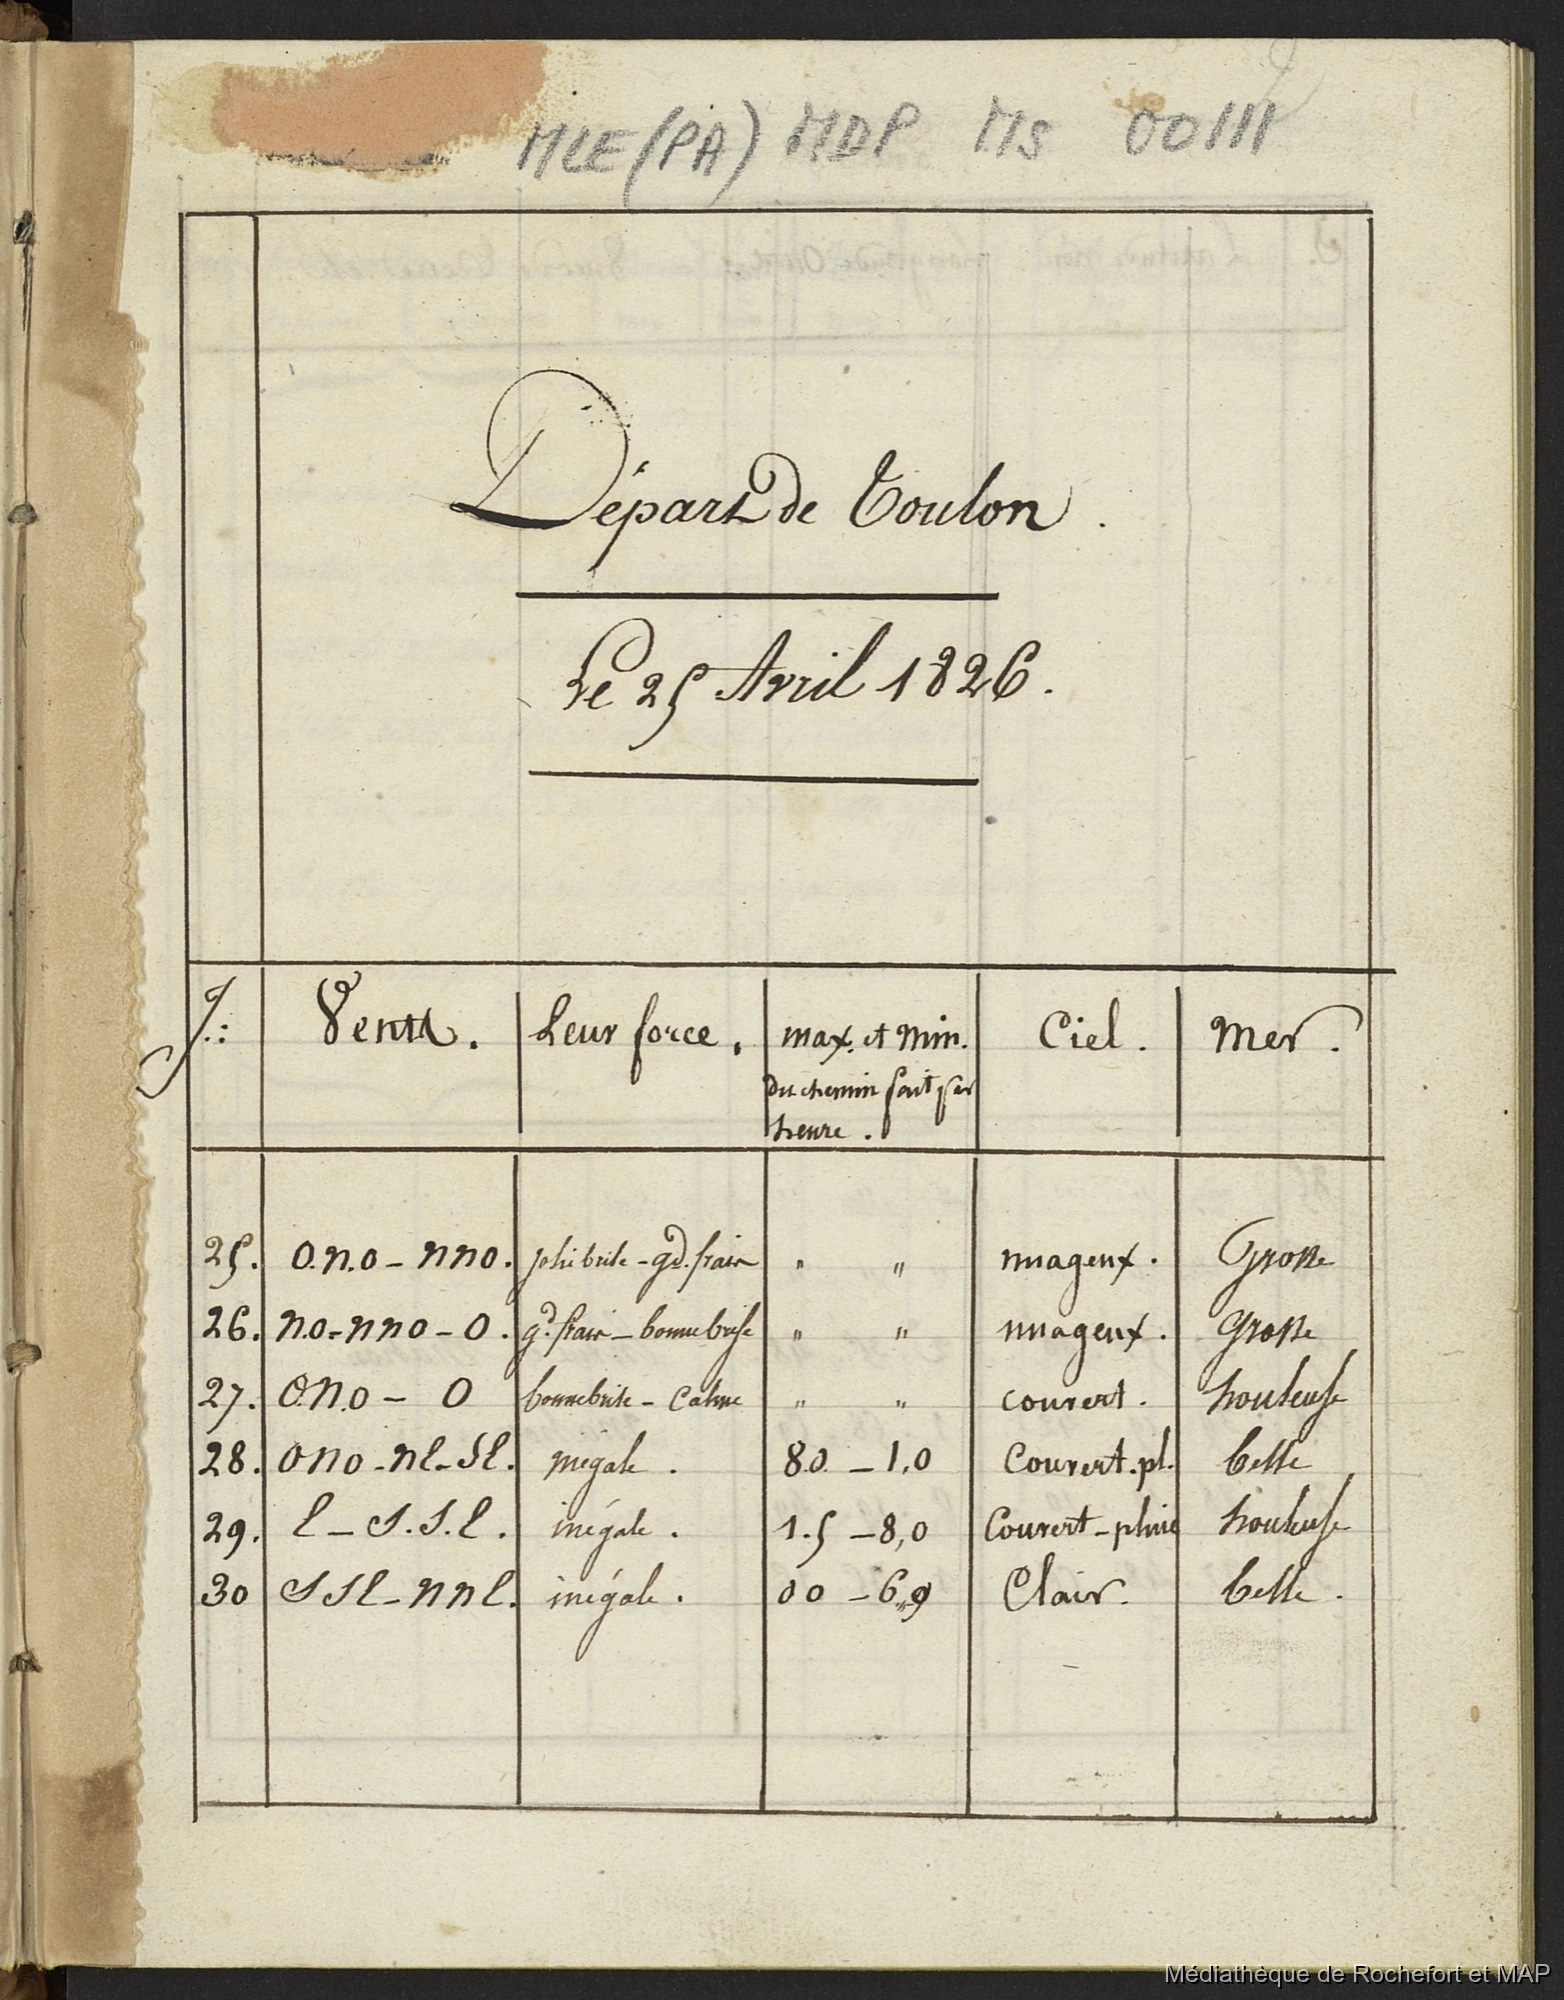 MLE (PA) MDP Ms 00111
Départ de Toulon.
Le 25 Avril 1826.
J.: Vents. Leur force. max. et min. du chemin fait par heure. Ciel. Mer.
25. O.n.o - nno. jolie brise - gd. frais " " nuageux. Grosse
26. n.o - nno - o. gd. frais - bonne brise " " nuageux. Grosse
27. O.n.o - O bonne brise - Calme " " couvert. houleuse
28. ono - ne - Se. inégale. 8.0. - 1,0 Couvert. pl. belle
29. E - S.S.E. inégale. 1.5 - 8,0 Couvert - pluie houleuse
30 SSE - nne. inégale. 00 - 6,,9 Clair. belle.
Médiathèque de Rochefort et MAP